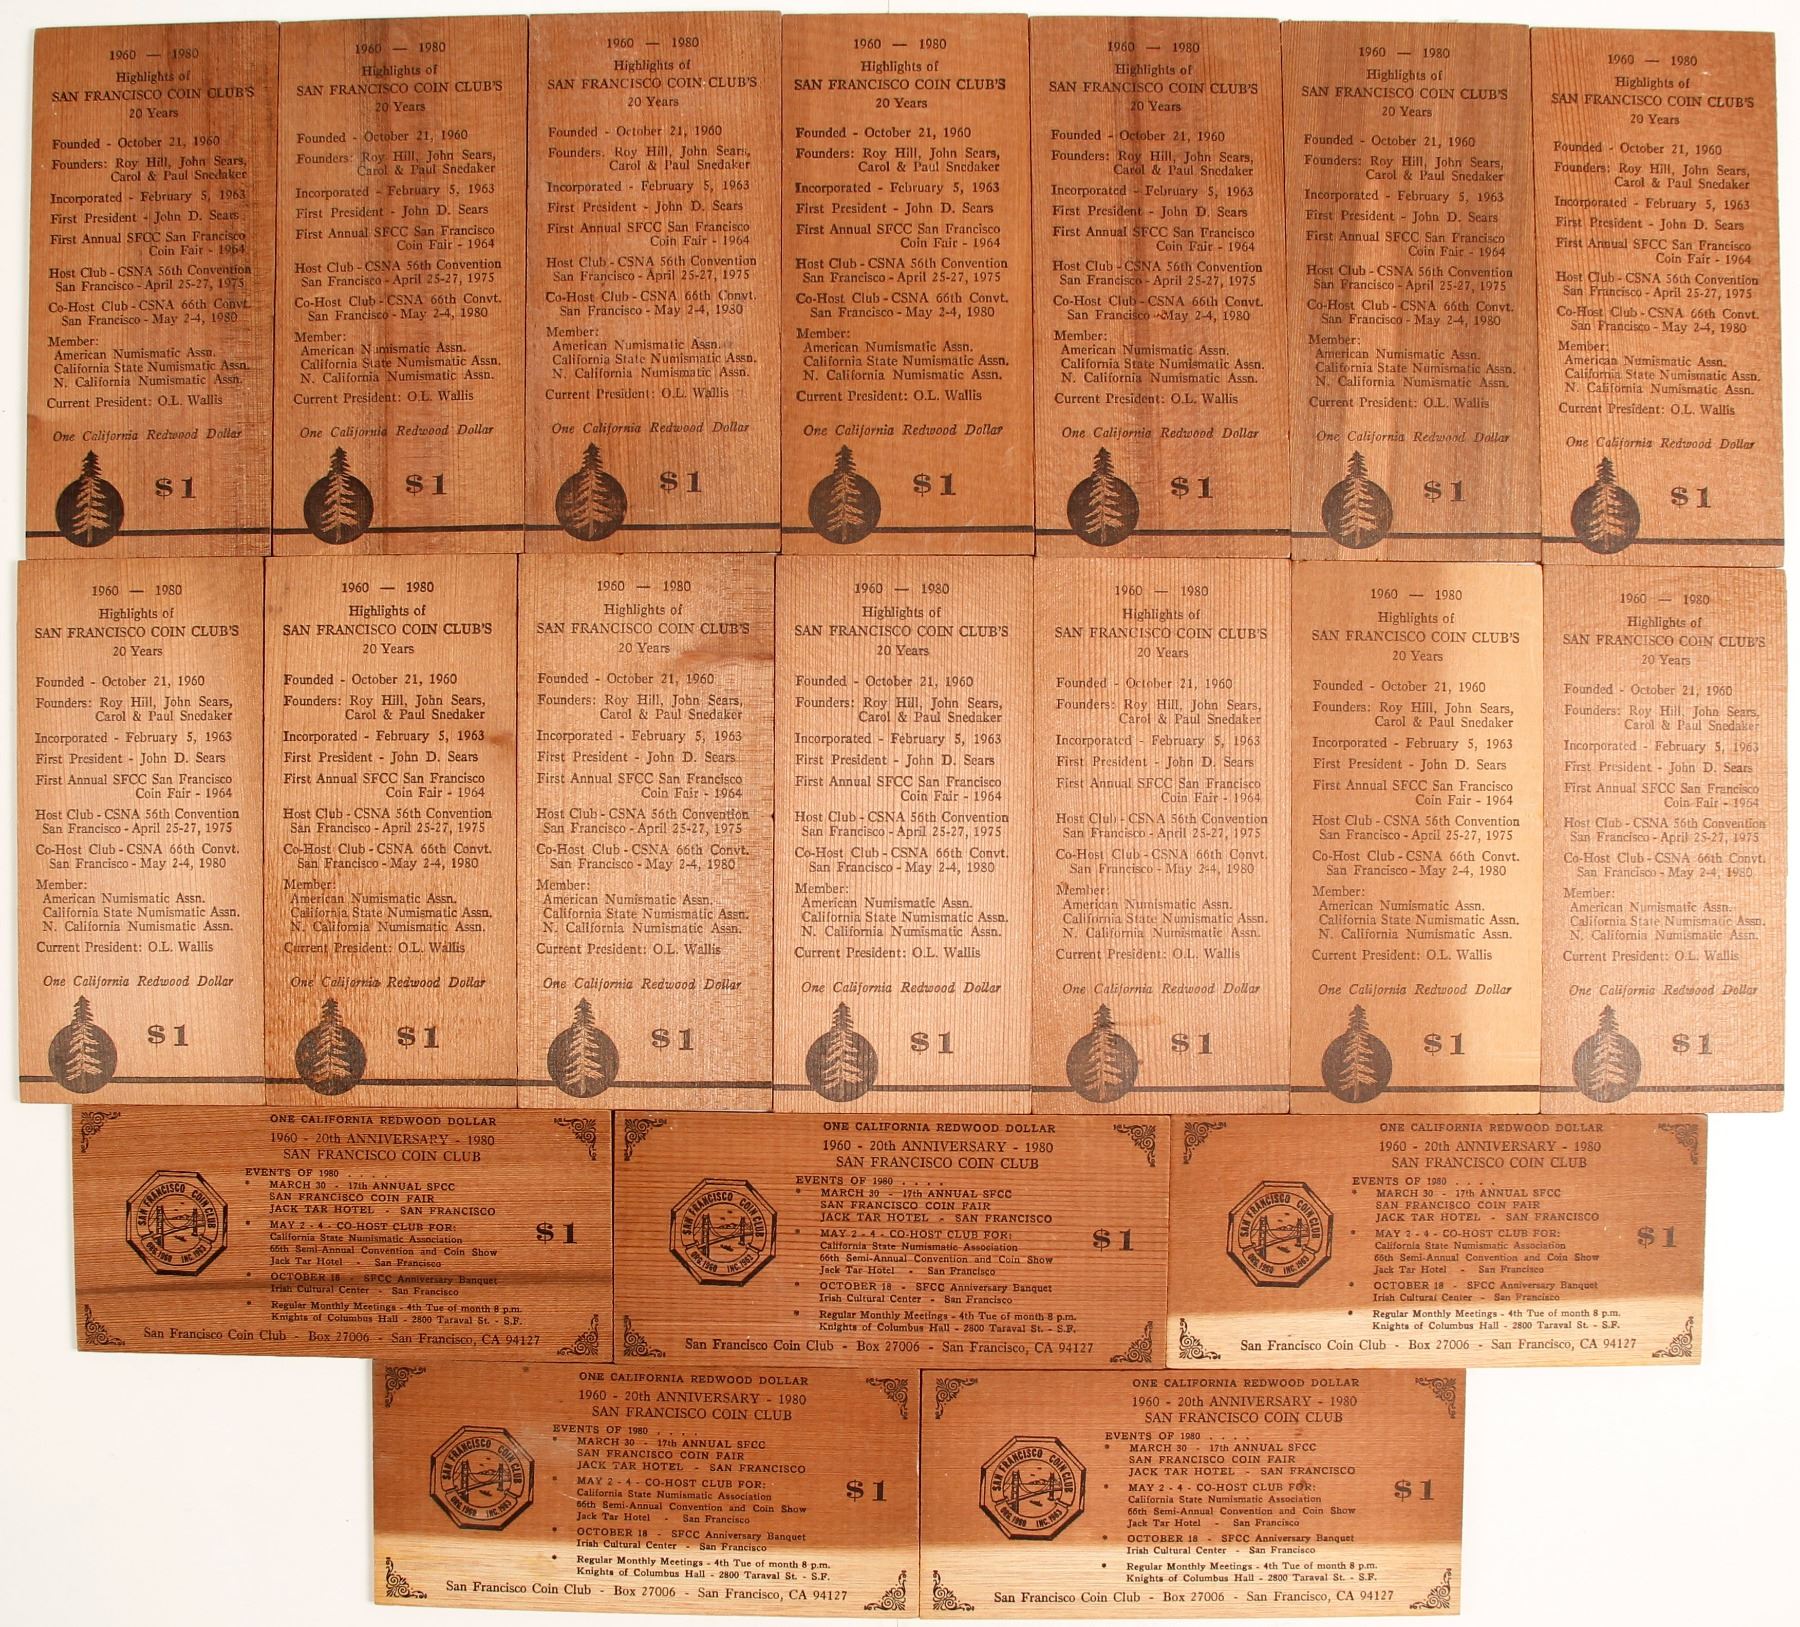 1960 — 1980
Highlights of
SAN FRANCISCO COIN CLUB'S
20 Years
Founded - October 21, 1960
Founders: Roy Hill, John Sears,
Carol & Paul Snedaker
Incorporated - February 5, 1963
First President - John D. Sears
First Annual SFCC San Francisco
Coin Fair - 1964
Host Club - CSNA 56th Convention
San Francisco - April 25-27, 1975
Co-Host Club - CSNA 66th Convt.
San Francisco - May 2-4, 1980
Member:
American Numismatic Assn.
California State Numismatic Assn.
N. California Numismatic Assn.
Current President: O.L. Wallis
One California Redwood Dollar
$1
1960 — 1980
Highlights of
SAN FRANCISCO COIN CLUB'S
20 Years
Founded - October 21, 1960
Founders: Roy Hill, John Sears,
Carol & Paul Snedaker
Incorporated - February 5, 1963
First President - John D. Sears
First Annual SFCC San Francisco
Coin Fair - 1964
Host Club - CSNA 56th Convention
San Francisco - April 25-27, 1975
Co-Host Club - CSNA 66th Convt.
San Francisco - May 2-4, 1980
Member:
American Numismatic Assn.
California State Numismatic Assn.
N. California Numismatic Assn.
Current President: O.L. Wallis
One California Redwood Dollar
$1
1960 — 1980
Highlights of
SAN FRANCISCO COIN CLUB'S
20 Years
Founded - October 21, 1960
Founders. Roy Hill, John Sears,
Carol & Paul Snedaker
Incorporated - February 5, 1963
First President - John D. Sears
First Annual SFCC San Francisco
Coin Fair - 1964
Host Club - CSNA 56th Convention
San Francisco - April 25-27, 1975
Co-Host Club - CSNA 66th Convt.
San Francisco - May 2-4, 1980
Member:
American Numismatic Assn.
California State Numismatic Assn.
N. California Numismatic Assn.
Current President: O.L. Wallis
One California Redwood Dollar
$1
1960 — 1980
Highlights of
SAN FRANCISCO COIN CLUB'S
20 Years
Founded - October 21, 1960
Founders: Roy Hill, John Sears,
Carol & Paul Snedaker
Incorporated - February 5, 1963
First President - John D. Sears
First Annual SFCC San Francisco
Coin Fair - 1964
Host Club - CSNA 56th Convention
San Francisco - April 25-27, 1975
Co-Host Club - CSNA 66th Convt.
San Francisco - May 2-4, 1980
Member:
American Numismatic Assn.
California State Numismatic Assn.
N. California Numismatic Assn.
Current President: O.L. Wallis
One California Redwood Dollar
$1
1960 — 1980
Highlights of
SAN FRANCISCO COIN CLUB'S
20 Years
Founded - October 21, 1960
Founders: Roy Hill, John Sears,
Carol & Paul Snedaker
Incorporated - February 5, 1963
First President - John D. Sears
First Annual SFCC San Francisco
Coin Fair - 1964
Host Club - CSNA 56th Convention
San Francisco - April 25-27, 1975
Co-Host Club - CSNA 66th Convt.
San Francisco - May 2-4, 1980
Member:
American Numismatic Assn.
California State Numismatic Assn.
N. California Numismatic Assn.
Current President: O.L. Wallis
One California Redwood Dollar
$1
1960 — 1980
Highlights of
SAN FRANCISCO COIN CLUB'S
20 Years
Founded - October 21, 1960
Founders: Roy Hill, John Sears,
Carol & Paul Snedaker
Incorporated - February 5, 1963
First President - John D. Sears
First Annual SFCC San Francisco
Coin Fair - 1964
Host Club - CSNA 56th Convention
San Francisco - April 25-27, 1975
Co-Host Club - CSNA 66th Convt.
San Francisco - May 2-4, 1980
Member:
American Numismatic Assn.
California State Numismatic Assn.
N. California Numismatic Assn.
Current President: O.L. Wallis
One California Redwood Dollar
$1
1960 — 1980
Highlights of
SAN FRANCISCO COIN CLUB'S
20 Years
Founded - October 21, 1960
Founders: Roy Hill, John Sears,
Carol & Paul Snedaker
Incorporated - February 5, 1963
First President - John D. Sears
First Annual SFCC San Francisco
Coin Fair - 1964
Host Club - CSNA 56th Convention
San Francisco - April 25-27, 1975
Co-Host Club - CSNA 66th Convt.
San Francisco - May 2-4, 1980
Member:
American Numismatic Assn.
California State Numismatic Assn.
N. California Numismatic Assn.
Current President: O.L. Wallis
One California Redwood Dollar
$1
1960 — 1980
Highlights of
SAN FRANCISCO COIN CLUB'S
20 Years
Founded - October 21, 1960
Founders: Roy Hill, John Sears,
Carol & Paul Snedaker
Incorporated - February 5, 1963
First President - John D. Sears
First Annual SFCC San Francisco
Coin Fair - 1964
Host Club - CSNA 56th Convention
San Francisco - April 25-27, 1975
Co-Host Club - CSNA 66th Convt.
San Francisco - May 2-4, 1980
Member:
American Numismatic Assn.
California State Numismatic Assn.
N. California Numismatic Assn.
Current President: O.L. Wallis
One California Redwood Dollar
$1
1960 — 1980
Highlights of
SAN FRANCISCO COIN CLUB'S
20 Years
Founded - October 21, 1960
Founders: Roy Hill, John Sears,
Carol & Paul Snedaker
Incorporated - February 5, 1963
First President - John D. Sears
First Annual SFCC San Francisco
Coin Fair - 1964
Host Club - CSNA 56th Convention
San Francisco - April 25-27, 1975
Co-Host Club - CSNA 66th Convt.
San Francisco - May 2-4, 1980
Member:
American Numismatic Assn.
California State Numismatic Assn.
N. California Numismatic Assn.
Current President: O.L. Wallis
One California Redwood Dollar
$1
1960 — 1980
Highlights of
SAN FRANCISCO COIN CLUB'S
20 Years
Founded - October 21, 1960
Founders: Roy Hill, John Sears,
Carol & Paul Snedaker
Incorporated - February 5, 1963
First President - John D. Sears
First Annual SFCC San Francisco
Coin Fair - 1964
Host Club - CSNA 56th Convention
San Francisco - April 25-27, 1975
Co-Host Club - CSNA 66th Convt.
San Francisco - May 2-4, 1980
Member:
American Numismatic Assn.
California State Numismatic Assn.
N. California Numismatic Assn.
Current President: O.L. Wallis
One California Redwood Dollar
$1
1960 — 1980
Highlights of
SAN FRANCISCO COIN CLUB'S
20 Years
Founded - October 21, 1960
Founders: Roy Hill, John Sears,
Carol & Paul Snedaker
Incorporated - February 5, 1963
First President - John D. Sears
First Annual SFCC San Francisco
Coin Fair - 1964
Host Club - CSNA 56th Convention
San Francisco - April 25-27, 1975
Co-Host Club - CSNA 66th Convt.
San Francisco - May 2-4, 1980
Member:
American Numismatic Assn.
California State Numismatic Assn.
N. California Numismatic Assn.
Current President: O.L. Wallis
One California Redwood Dollar
$1
1960 — 1980
Highlights of
SAN FRANCISCO COIN CLUB'S
20 Years
Founded - October 21, 1960
Founders: Roy Hill, John Sears,
Carol & Paul Snedaker
Incorporated - February 5, 1963
First President - John D. Sears
First Annual SFCC San Francisco
Coin Fair - 1964
Host Club - CSNA 56th Convention
San Francisco - April 25-27, 1975
Co-Host Club - CSNA 66th Convt.
San Francisco - May 2-4, 1980
Member:
American Numismatic Assn.
California State Numismatic Assn.
N. California Numismatic Assn.
Current President: O.L. Wallis
One California Redwood Dollar
$1
1960 — 1980
Highlights of
SAN FRANCISCO COIN CLUB'S
20 Years
Founded - October 21, 1960
Founders: Roy Hill, John Sears,
Carol & Paul Snedaker
Incorporated - February 5, 1963
First President - John D. Sears
First Annual SFCC San Francisco
Coin Fair - 1964
Host Club - CSNA 56th Convention
San Francisco - April 25-27, 1975
Co-Host Club - CSNA 66th Convt.
San Francisco - May 2-4, 1980
Member:
American Numismatic Assn.
California State Numismatic Assn.
N. California Numismatic Assn.
Current President: O.L. Wallis
One California Redwood Dollar
$1
1960 — 1980
Highlights of
SAN FRANCISCO COIN CLUB'S
20 Years
Founded - October 21, 1960
Founders: Roy Hill, John Sears,
Carol & Paul Snedaker
Incorporated - February 5, 1963
First President - John D. Sears
First Annual SFCC San Francisco
Coin Fair - 1964
Host Club - CSNA 56th Convention
San Francisco - April 25-27, 1975
Co-Host Club - CSNA 66th Convt.
San Francisco - May 2-4, 1980
Member:
American Numismatic Assn.
California State Numismatic Assn.
N. California Numismatic Assn.
Current President: O.L. Wallis
One California Redwood Dollar
$1
ONE CALIFORNIA REDWOOD DOLLAR
1960 - 20th ANNIVERSARY - 1980
SAN FRANCISCO COIN CLUB
SAN FRANCISCO COIN CLUB
ORG. 1960 INC. 1963
EVENTS OF 1980 . . . .
* MARCH 30 - 17th ANNUAL SFCC
SAN FRANCISCO COIN FAIR
JACK TAR HOTEL - SAN FRANCISCO
* MAY 2 - 4 - CO-HOST CLUB FOR:
California State Numismatic Association
66th Semi-Annual Convention and Coin Show
Jack Tar Hotel - San Francisco
* OCTOBER 18 - SFCC Anniversary Banquet
Irish Cultural Center - San Francisco
* Regular Monthly Meetings - 4th Tue of month 8 p.m.
Knights of Columbus Hall - 2800 Taraval St. - S.F.
$1
San Francisco Coin Club - Box 27006 - San Francisco, CA 94127
ONE CALIFORNIA REDWOOD DOLLAR
1960 - 20th ANNIVERSARY - 1980
SAN FRANCISCO COIN CLUB
SAN FRANCISCO COIN CLUB
ORG. 1960 INC. 1963
EVENTS OF 1980 . . . .
* MARCH 30 - 17th ANNUAL SFCC
SAN FRANCISCO COIN FAIR
JACK TAR HOTEL - SAN FRANCISCO
* MAY 2 - 4 - CO-HOST CLUB FOR:
California State Numismatic Association
66th Semi-Annual Convention and Coin Show
Jack Tar Hotel - San Francisco
* OCTOBER 18 - SFCC Anniversary Banquet
Irish Cultural Center - San Francisco
* Regular Monthly Meetings - 4th Tue of month 8 p.m.
Knights of Columbus Hall - 2800 Taraval St. - S.F.
$1
San Francisco Coin Club - Box 27006 - San Francisco, CA 94127
ONE CALIFORNIA REDWOOD DOLLAR
1960 - 20th ANNIVERSARY - 1980
SAN FRANCISCO COIN CLUB
SAN FRANCISCO COIN CLUB
ORG. 1960 INC. 1963
EVENTS OF 1980 . . . .
* MARCH 30 - 17th ANNUAL SFCC
SAN FRANCISCO COIN FAIR
JACK TAR HOTEL - SAN FRANCISCO
* MAY 2 - 4 - CO-HOST CLUB FOR:
California State Numismatic Association
66th Semi-Annual Convention and Coin Show
Jack Tar Hotel - San Francisco
* OCTOBER 18 - SFCC Anniversary Banquet
Irish Cultural Center - San Francisco
* Regular Monthly Meetings - 4th Tue of month 8 p.m.
Knights of Columbus Hall - 2800 Taraval St. - S.F.
$1
San Francisco Coin Club - Box 27006 - San Francisco, CA 94127
ONE CALIFORNIA REDWOOD DOLLAR
1960 - 20th ANNIVERSARY - 1980
SAN FRANCISCO COIN CLUB
SAN FRANCISCO COIN CLUB
ORG. 1960 INC. 1963
EVENTS OF 1980 . . . .
* MARCH 30 - 17th ANNUAL SFCC
SAN FRANCISCO COIN FAIR
JACK TAR HOTEL - SAN FRANCISCO
* MAY 2 - 4 - CO-HOST CLUB FOR:
California State Numismatic Association
66th Semi-Annual Convention and Coin Show
Jack Tar Hotel - San Francisco
* OCTOBER 18 - SFCC Anniversary Banquet
Irish Cultural Center - San Francisco
* Regular Monthly Meetings - 4th Tue of month 8 p.m.
Knights of Columbus Hall - 2800 Taraval St. - S.F.
$1
San Francisco Coin Club - Box 27006 - San Francisco, CA 94127
ONE CALIFORNIA REDWOOD DOLLAR
1960 - 20th ANNIVERSARY - 1980
SAN FRANCISCO COIN CLUB
SAN FRANCISCO COIN CLUB
ORG. 1960 INC. 1963
EVENTS OF 1980 . . . .
* MARCH 30 - 17th ANNUAL SFCC
SAN FRANCISCO COIN FAIR
JACK TAR HOTEL - SAN FRANCISCO
* MAY 2 - 4 - CO-HOST CLUB FOR:
California State Numismatic Association
66th Semi-Annual Convention and Coin Show
Jack Tar Hotel - San Francisco
* OCTOBER 18 - SFCC Anniversary Banquet
Irish Cultural Center - San Francisco
* Regular Monthly Meetings - 4th Tue of month 8 p.m.
Knights of Columbus Hall - 2800 Taraval St. - S.F.
$1
San Francisco Coin Club - Box 27006 - San Francisco, CA 94127